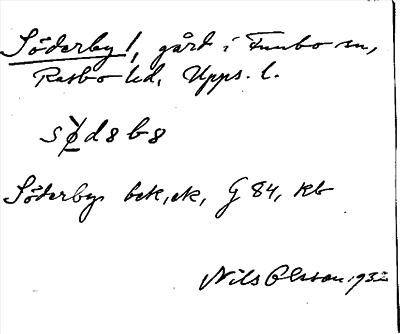 Söderby 1, gård i Funbo sn,
Rasbo hd, Upps. l.
sø̀d8b8
Söderbys bck, ek, G 84, kb
Nils Olsson 1932